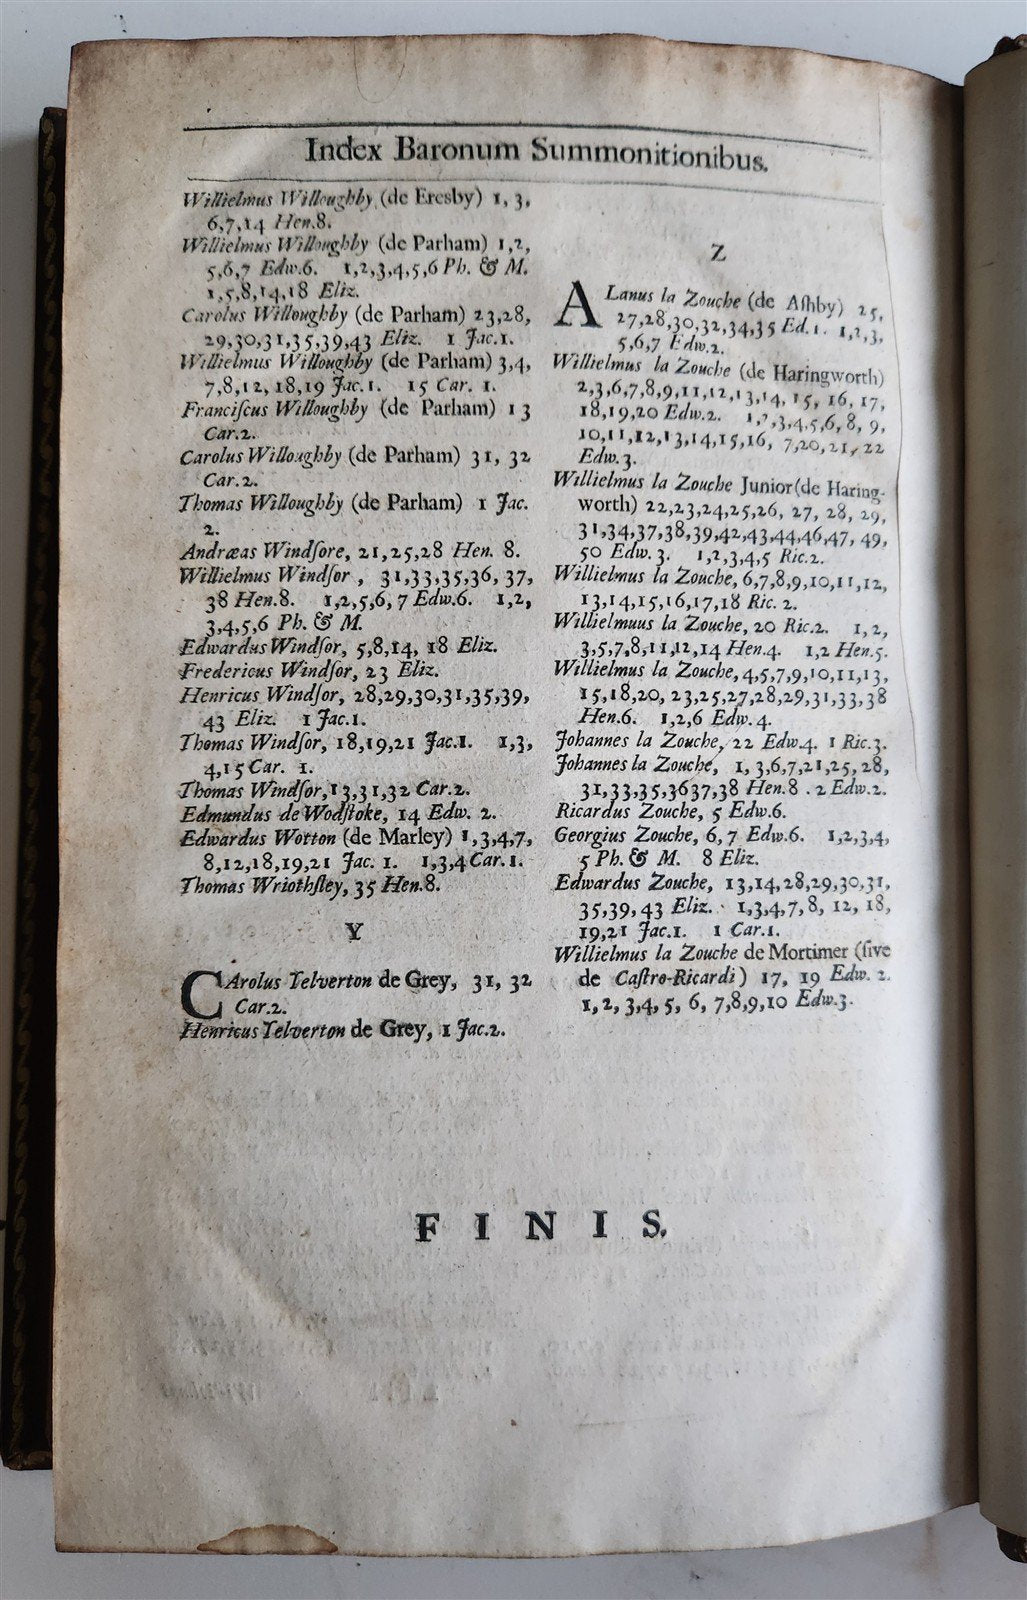 Index Baronum Summonitionibus.
Willielmus Willoughby (de Eresby) 1, 3,
6,7,14 Hen.8.
Willielmus Willoughby (de Parham) 1,2,
5,6,7 Edw.6. 1,2,3,4,5,6 Ph. & M.
1,5,8,14,18 Eliz.
Carolus Willoughby (de Parham) 23,28,
29,30,31,35,39,43 Eliz. 1 Jac.1.
Willielmus Willoughby (de Parham) 3,4,
7,8,12, 18,19 Jac.1. 15 Car. 1.
Franciſcus Willoughby (de Parham) 13
Car.2.
Carolus Willoughby (de Parham) 31, 32
Car.2.
Thomas Willoughby (de Parham) 1 Jac.
2.
Andræas Windſore, 21,25,28 Hen. 8.
Willielmus Windſor , 31,33,35,36, 37,
38 Hen.8. 1,2,5,6,7 Edw.6. 1,2,
3,4,5,6 Ph. & M.
Edwardus Windſor, 5,8,14, 18 Eliz.
Fredericus Windſor, 23 Eliz.
Henricus Windſor, 28,29,30,31,35,39,
43 Eliz. 1 Jac.1.
Thomas Windſor, 18,19,21 Jac.1. 1,3,
4,15 Car. 1.
Thomas Windſor,13,31,32 Car.2.
Edmundus de Wodſtoke, 14 Edw. 2.
Edwardus Wotton (de Marley) 1,3,4,7,
8,12,18,19,21 Jac. 1. 1,3,4 Car.1.
Thomas Wriothſley, 35 Hen.8.
Y
CArolus Yelverton de Grey, 31, 32
Car.2.
Henricus Yelverton de Grey, 1 Jac.2.
Z
ALanus la Zouche (de Aſhby) 25,
27,28,30,32,34,35 Ed.1. 1,2,3,
5,6,7 Edw.2.
Willielmus la Zouche (de Haringworth)
2,3,6,7,8,9,11,12,13,14, 15, 16, 17,
18,19,20 Edw.2. 1,2,3,4,5,6, 8, 9,
10,11,12,13,14,15,16, 7,20,21,22
Edw.3.
Willielmus la Zouche Junior(de Haring-
worth) 22,23,24,25,26, 27, 28, 29,
31,34,37,38,39,42,43,44,46,47, 49,
50 Edw.3. 1,2,3,4,5 Ric.2.
Willielmus la Zouche, 6,7,8,9,10,11,12,
13,14,15,16,17,18 Ric. 2.
Willielmuus la Zouche, 20 Ric.2. 1,2,
3,5,7,8,11,12,14 Hen.4. 1,2 Hen.5.
Willielmus la Zouche,4,5,7,9,10,11,13,
15,18,20, 23,25,27,28,29,31,33,38
Hen.6. 1,2,6 Edw.4.
Johannes la Zouche, 22 Edw.4. 1 Ric.3.
Johannes la Zouche, 1, 3,6,7,21,25, 28,
31,33,35,3637,38 Hen.8 . 2 Edw.2.
Ricardus Zouche, 5 Edw.6.
Georgius Zouche, 6, 7 Edw.6. 1,2,3,4,
5 Ph. & M. 8 Eliz.
Edwardus Zouche, 13,14,28,29,30,31,
35,39,43 Eliz. 1,3,4,7,8, 12, 18,
19,21 Jac.1. 1 Car.1.
Willielmus la Zouche de Mortimer (ſive
de Caſtro-Ricardi) 17, 19 Edw. 2.
1,2, 3,4, 5, 6, 7,8,9,10 Edw.3.
FINIS.